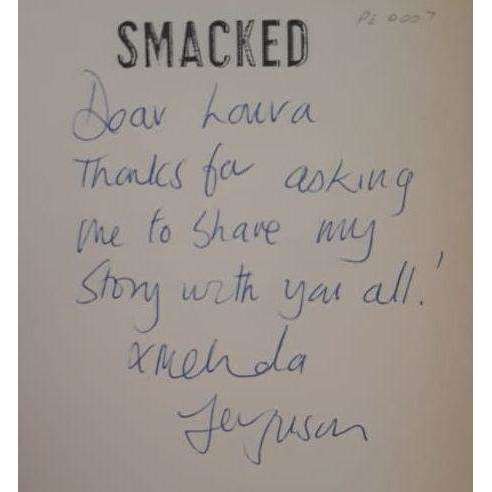 PE 0007
SMACKED
Dear Laura
Thanks for asking
me to share my
Story with you all!
x Melinda
Ferguson